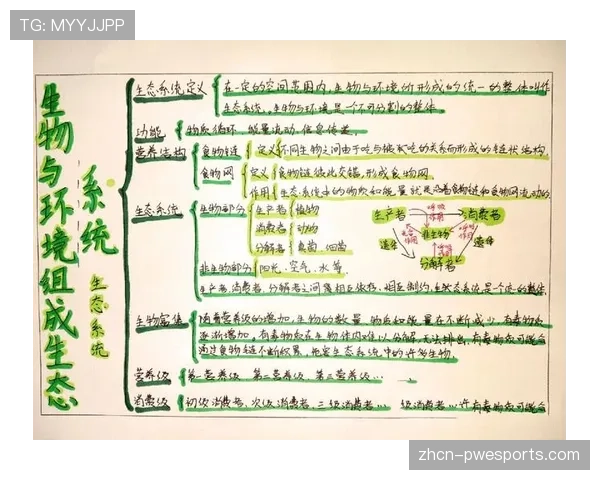 TG: MYYJJPP
生物与环境组成生态系统
生态系统
生态系统定义
在一定的空间范围内,生物与环境所形成的统一的整体叫作
生态系统。生物与环境是一个不可分割的整体
功能
物质循环 能量流动 信息传递
营养结构
食物链 定义 不同生物之间由于吃与被吃的关系而形成的链状结构
食物网 定义 食物链彼此交错,形成食物网
作用 生态系统中的物质和能量就是沿着食物链和食物网流动的
生态系统
生物部分
生产者 植物
消费者 动物
分解者 真菌 细菌
生产者 呼吸作用 消费者
非生物
遗体 遗体
分解者
非生物部分 阳光、空气、水 等
生产者、消费者、分解者之间是相互依存、相互制约
生物富集
随着营养级的增加,生物的数量、物质和能量在不断减少
逐渐增加,有毒物质在生物体内难以分解、无法排出,有毒物质可能会
通过食物链不断积累,危害生态系统中的许多生物。
营养级 第一营养级 第二营养级 第三营养级…
消费级 初级消费者、次级消费者、三级消费者… 级消费者… 有毒物质可能会
zhcn-pwesports.com